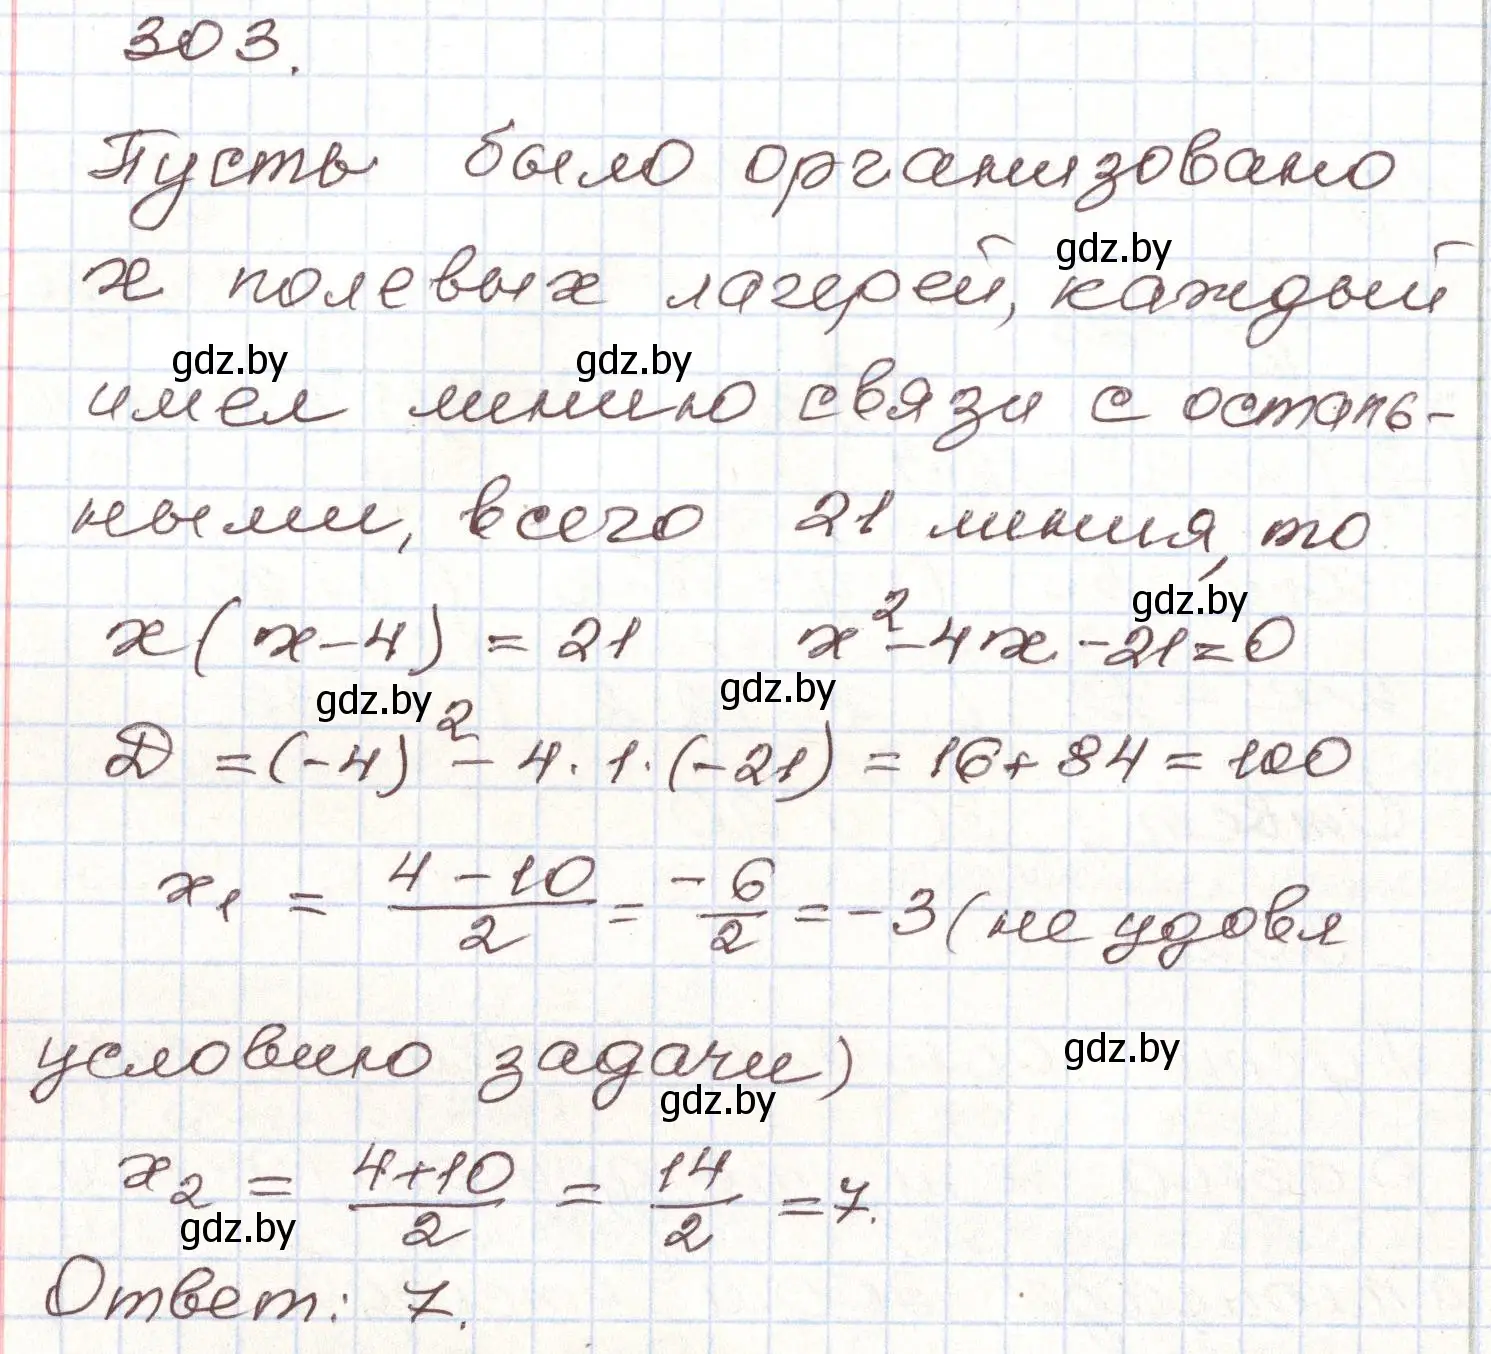 303.
Пусть было организовано
х полевых лагерей, каждый
gdz.by
имел линию связи с осталь-
gdz.by gdz.by
ными, всего 21 линия, то
x(x-4) = 21 x²-4x-21=0
gdz.by
D = (-4)² - 4·1·(-21) = 16+84=100
gdz.by gdz.by
x₁ = (4-10)/2 = -6/2 = -3 (не удовл
условию задачи)
gdz.by
gdz.by
x₂ = (4+10)/2 = 14/2 = 7.
gdz.by
Ответ: 7.